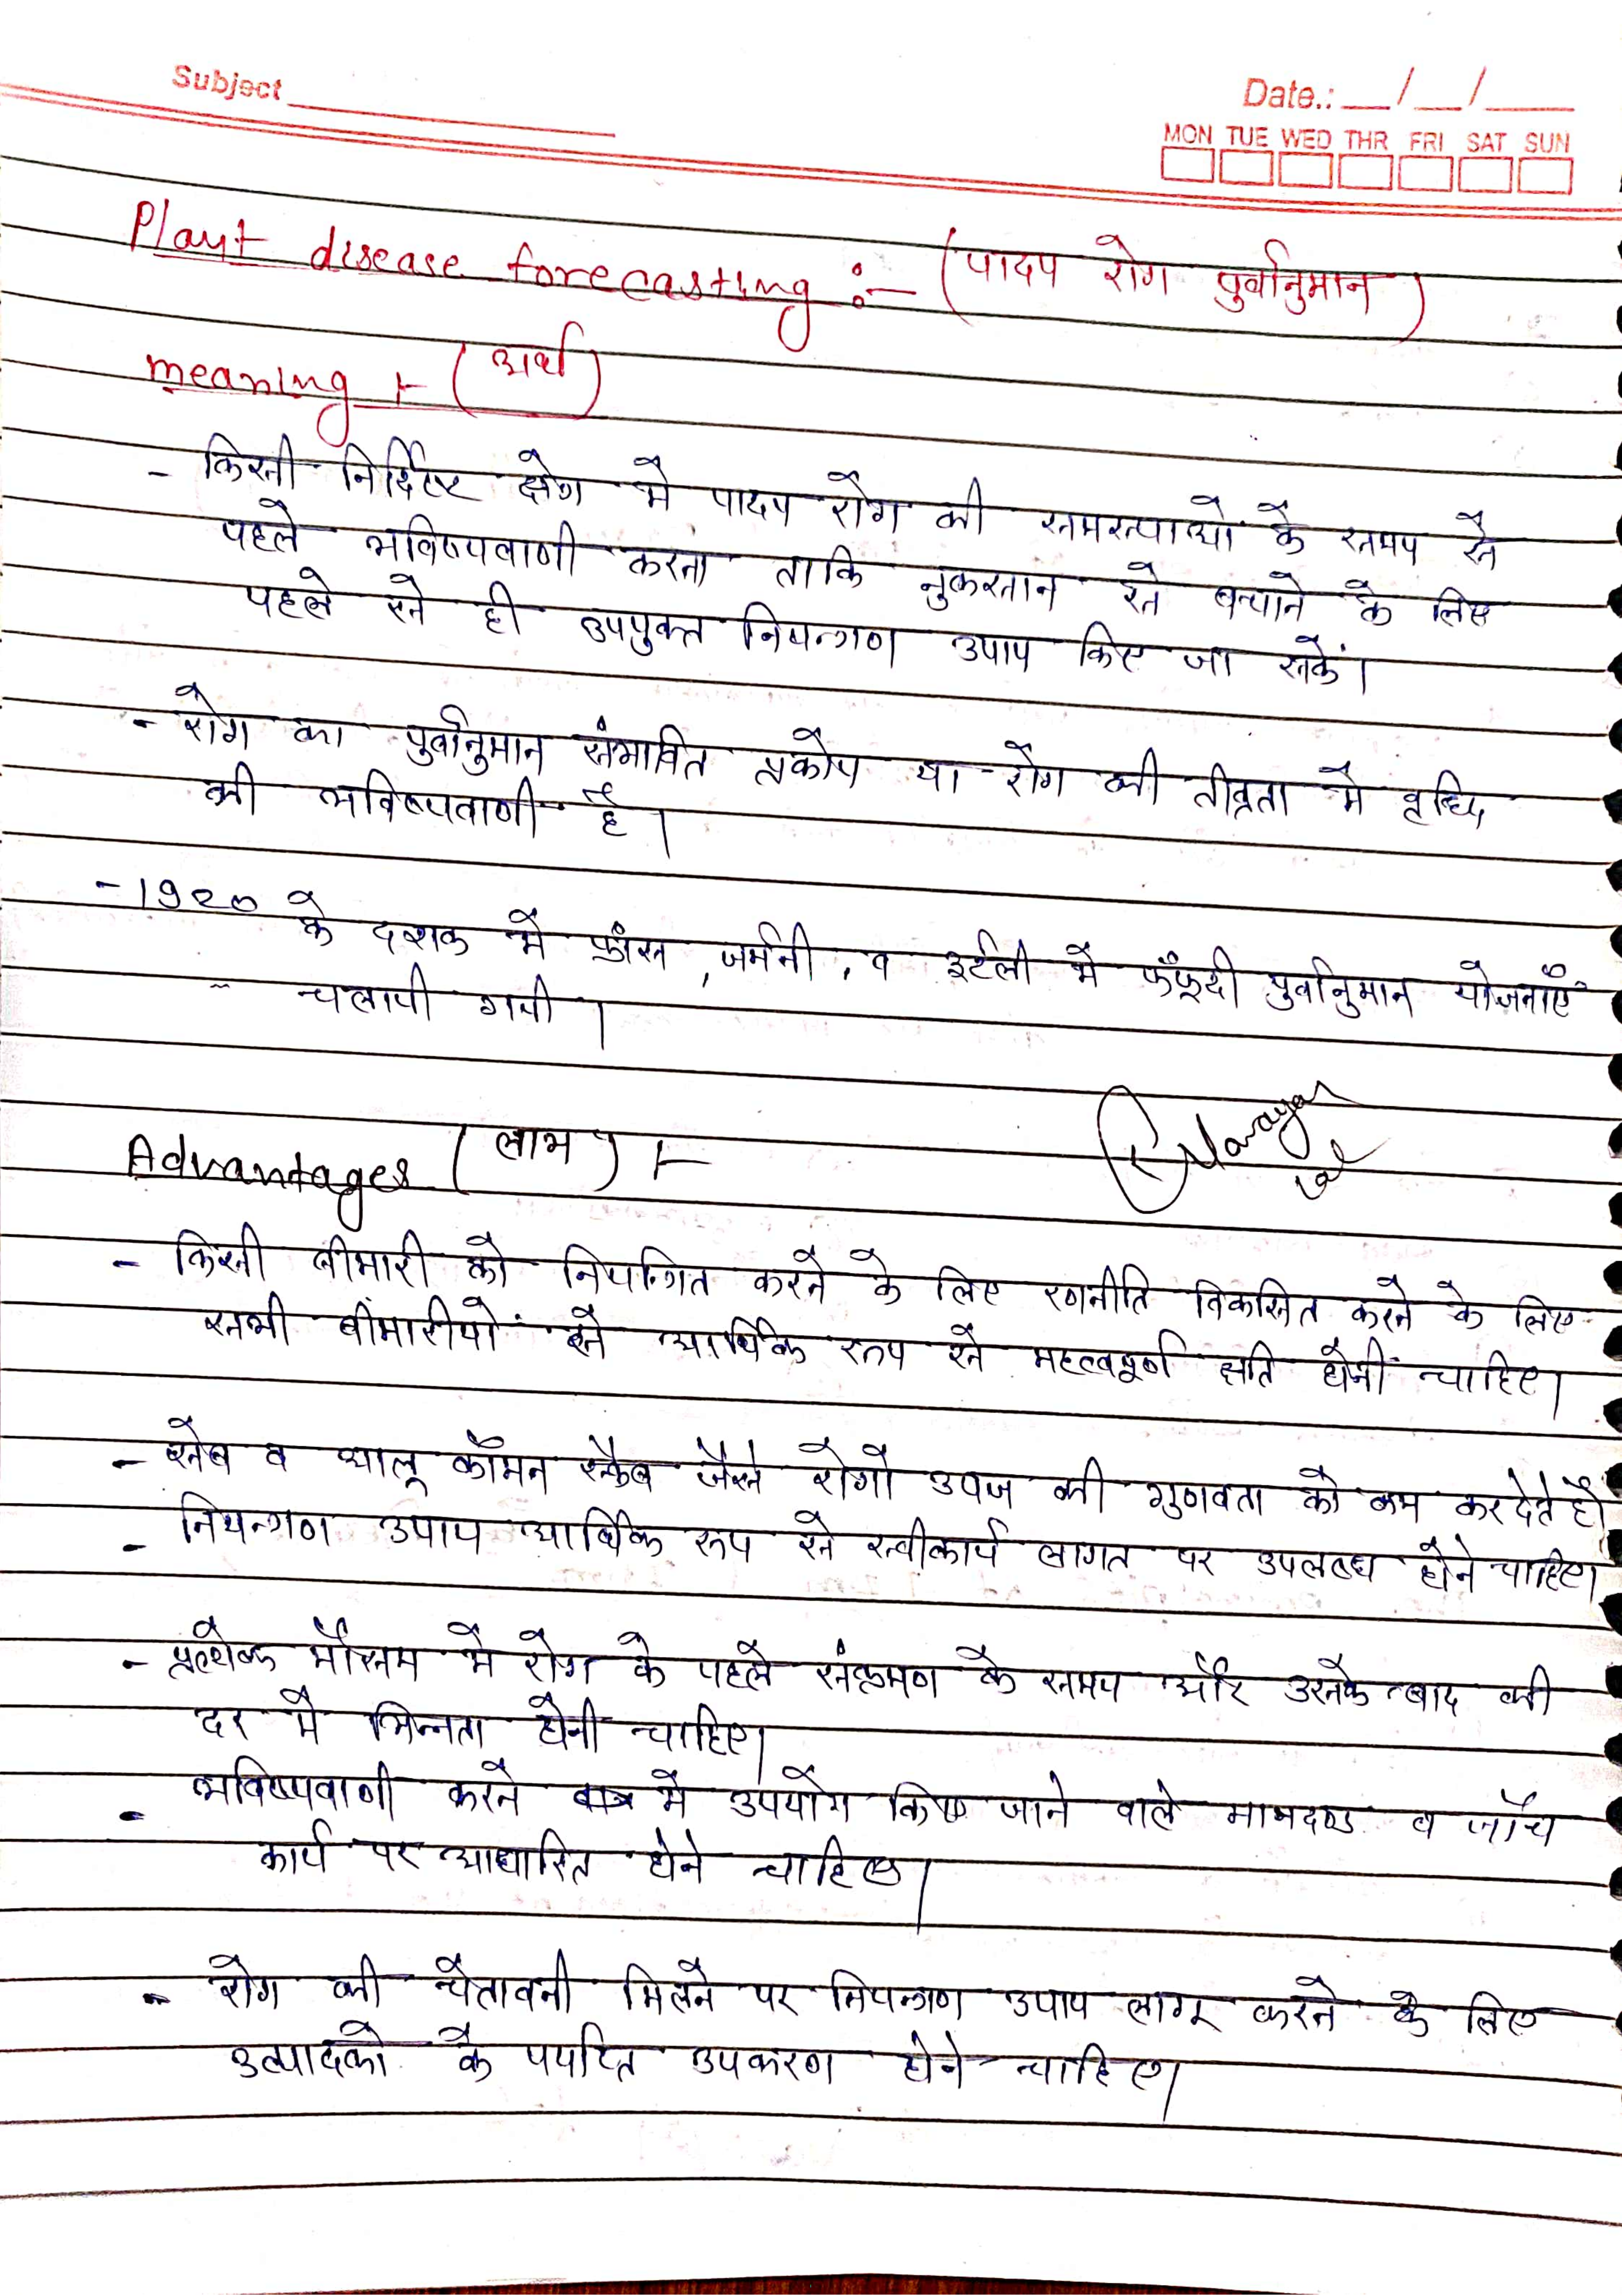 Subject
Date.: __/__/__
MON TUE WED THR FRI SAT SUN
Plant disease forecasting :- (पादप रोग पुर्वानुमान)
meaning :- (अर्थ)
- किसी निर्दिष्ट क्षेत्र मे पादप रोग की समस्याओं के समय से
पहले भविष्यवाणी करना ताकि नुकसान से बचाने के लिए
पहले से ही उपयुक्त नियन्त्रण उपाय किए जा सकें।
- रोग का पुर्वानुमान संभावित प्रकोप या रोग की तीव्रता मे वृध्दि
की भविष्यवाणी है।
- 1920 के दशक मे फ्रांस, जर्मनी, व इटली मे फफूंदी पुर्वानुमान योजनाएँ
चलायी गयी।
Narayan
Advantages (लाभ) :-
- किसी बीमारी को नियन्त्रित करने के लिए रणनीति विकसित करने के लिए
सभी बीमारीयों से आर्थिक रूप से महत्वपूर्ण क्षति होनी चाहिए।
- सेब व आलू कॉमन स्कैब जैसे रोगो उपज की गुणवता को कम कर देते है
- नियन्त्रण उपाय आर्थिक रूप से स्वीकार्य लागत पर उपलब्ध होने चाहिए।
- प्रत्येक मौसम मे रोग के पहले संक्रमण के समय और उसके बाद की
दर मे भिन्नता होनी चाहिए।
- भविष्यवाणी करने मे उपयोग किए जाने वाले मापदण्ड व जाँच
कार्य पर आधारित होने चाहिए।
- रोग की चेतावनी मिलने पर नियन्त्रण उपाय लागू करने के लिए
उत्पादको के पर्याप्त उपकरण होने चाहिए।